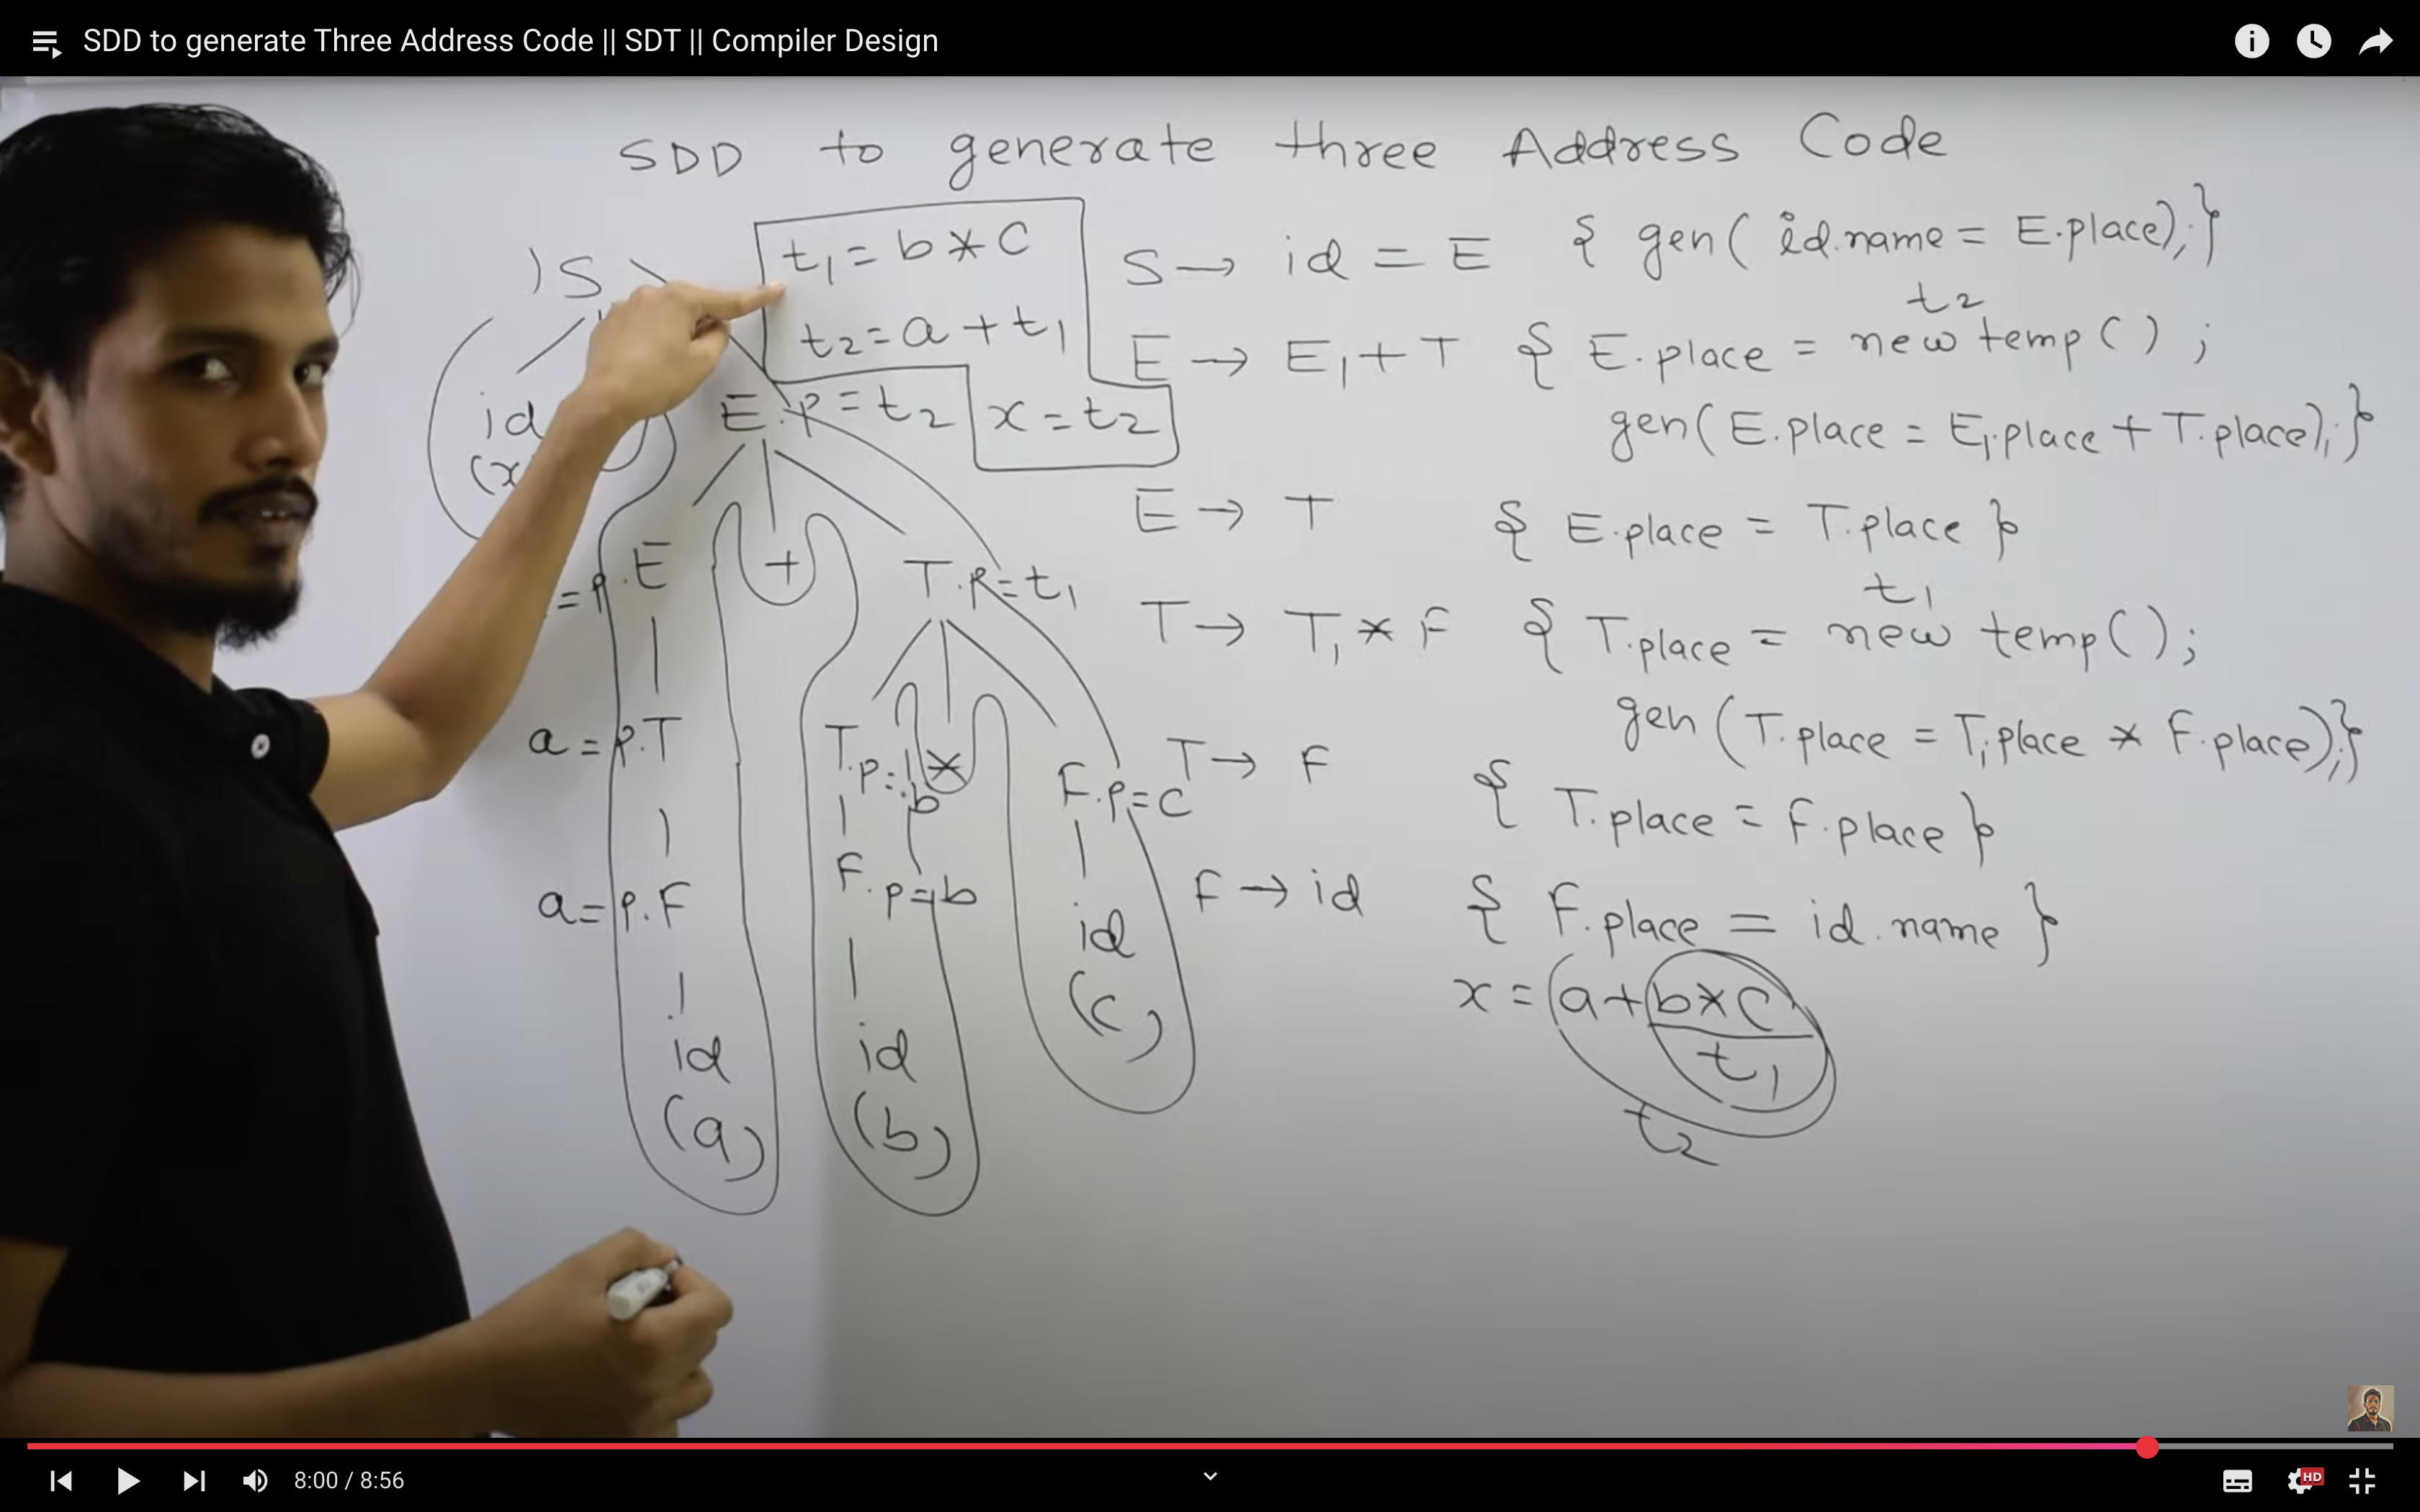 SDD to generate Three Address Code || SDT || Compiler Design
SDD to generate three Address Code
S
t₁ = b * c
t₂ = a + t₁
x = t₂
id
(x
E.p = t₂
= p.E
+
T.p = t₁
a = p.T
T.p = b
*
F.p = c
a = p.F
F.p = b
id
(c)
id
(a)
id
(b)
S → id = E { gen( id.name = E.place); }
t₂
E → E₁ + T { E.place = new temp( ) ;
gen( E.place = E₁.place + T.place); }
E → T { E.place = T.place }
t₁
T → T₁ * F { T.place = new temp( );
gen ( T.place = T₁.place * F.place); }
T → F { T.place = F.place }
F → id { F.place = id.name }
x = (a + b * c
t₁
t₂
8:00 / 8:56
HD